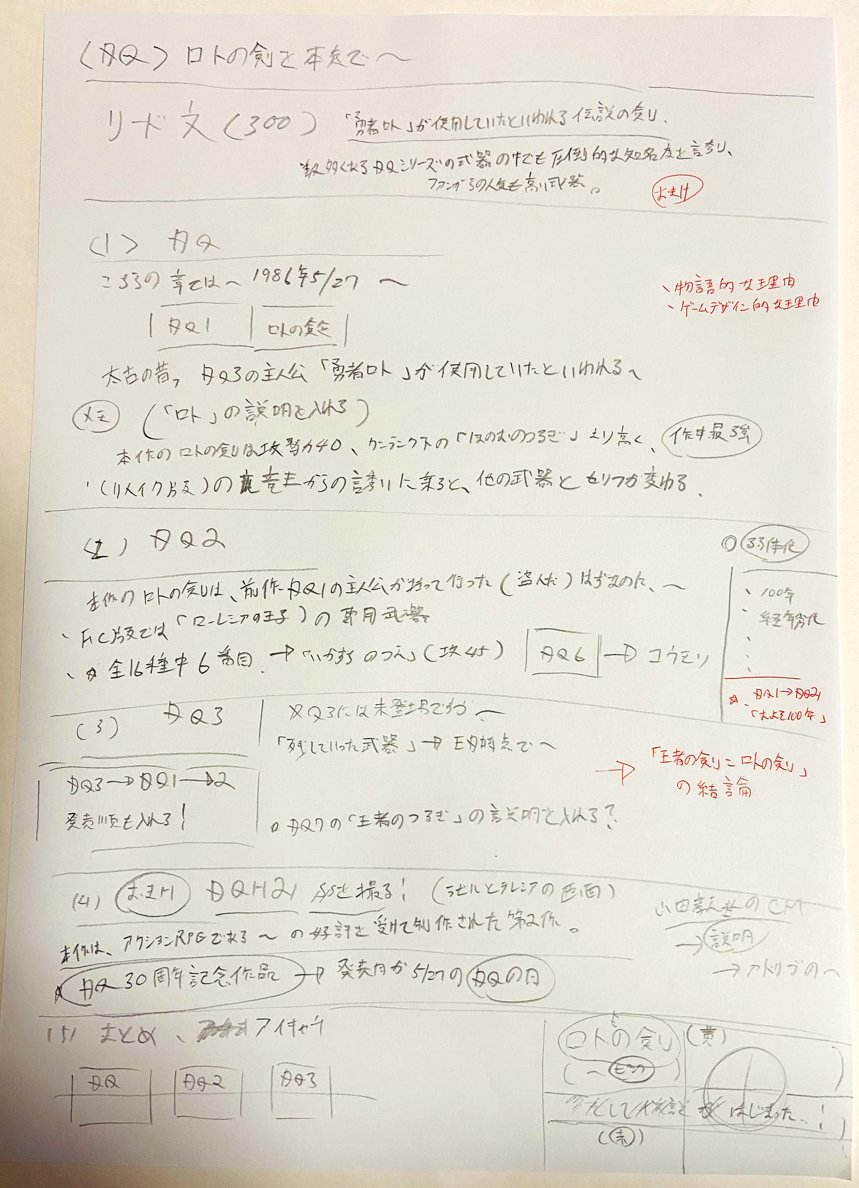 (DQ) ロトの剣を本気で〜
リード文(300)
「勇者ロト」が使用していたといわれる伝説の剣。
数多くあるDQシリーズの武器の中でも圧倒的な知名度を誇り、
ファンからの人気も高い武器。
おまけ
(1) DQ
こちらの章では〜 1986年5/27 〜
・物語的な理由
・ゲームデザイン的な理由
DQ1
ロトの剣
太古の昔、DQ3の主人公「勇者ロト」が使用していたといわれる〜
メモ (「ロト」の説明を入れる)
本作のロトの剣は攻撃力40、ワンランク下の「ほのおのつるぎ」より高く、作中最強
・(リメイク版)の竜王からの誘いに乗ると、他の武器とセリフが変わる。
(2) DQ2
◎ 弱体化
本作のロトの剣は、前作DQ1の主人公が持って行った(盗んだ)はずなのに、〜
・FC版では「ローレシアの王子」の専用武器
・全16種中6番目。→「いかずちのつえ」(攻45)
DQ6 → コウモリ
・100年
・経年劣化
☆・DQ1→DQ2
「およそ100年」
(3) DQ3
DQ3には未登場ですが〜
「残していった武器」→ED時点で〜
→「王者の剣=ロトの剣」
の結論
DQ3→DQ1→2
発売順も入れる!
○DQ7の「王者のつるぎ」の説明を入れる?
(4) おまけ DQH2 SSを撮る! (ラゼルとテレシアの画面)
本作は、アクションRPGである〜の好評を受けて制作された第2作。
→説明
→アドリブの〜
☆ DQ30周年記念作品 → 発売日が5/27のDQの日
(5) まとめ、アイキャッチ
DQ
DQ2
DQ3
ロトの剣
(黄)
そして伝説がはじまった…!
(赤)